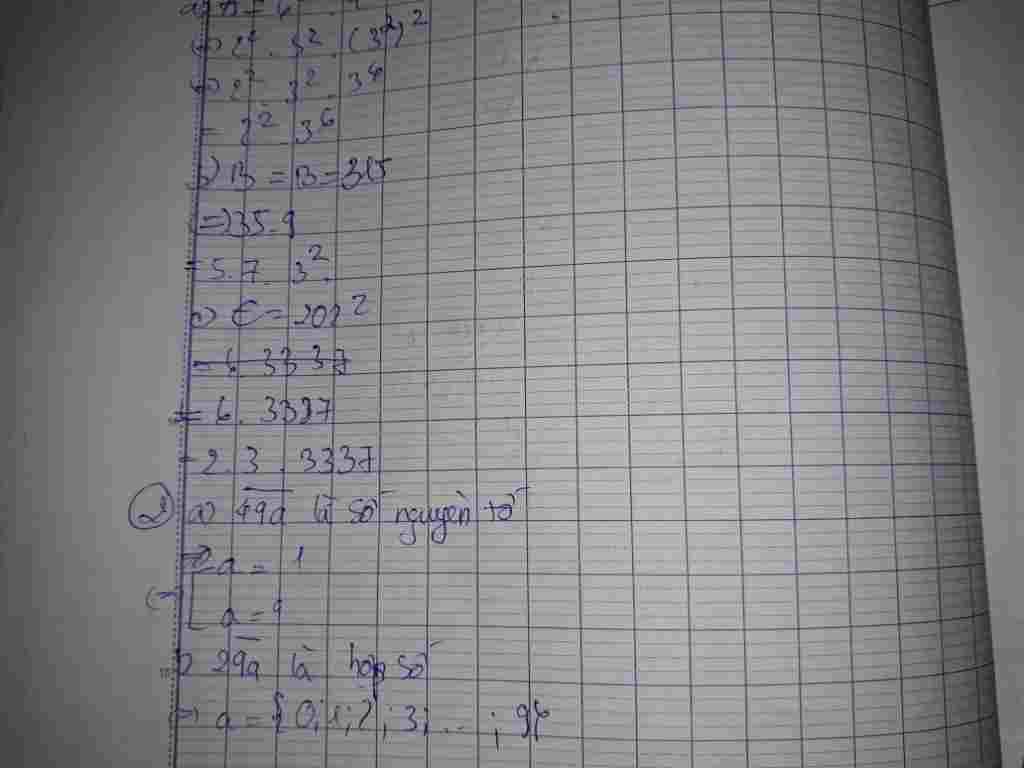 =) 2². 3². (3²)²
=) 2². 3². 3⁴
= 2². 3⁶
b) B = B = 315
=) 35.9
= 5.7. 3².
c) C = 202²
= 6. 3337
= 6. 3337
= 2.3.3337
② a) 49a là số nguyên tố
a = 1
a = 9
29a là hợp số
=) a = {0; 1; 2; 3; ...; 9}